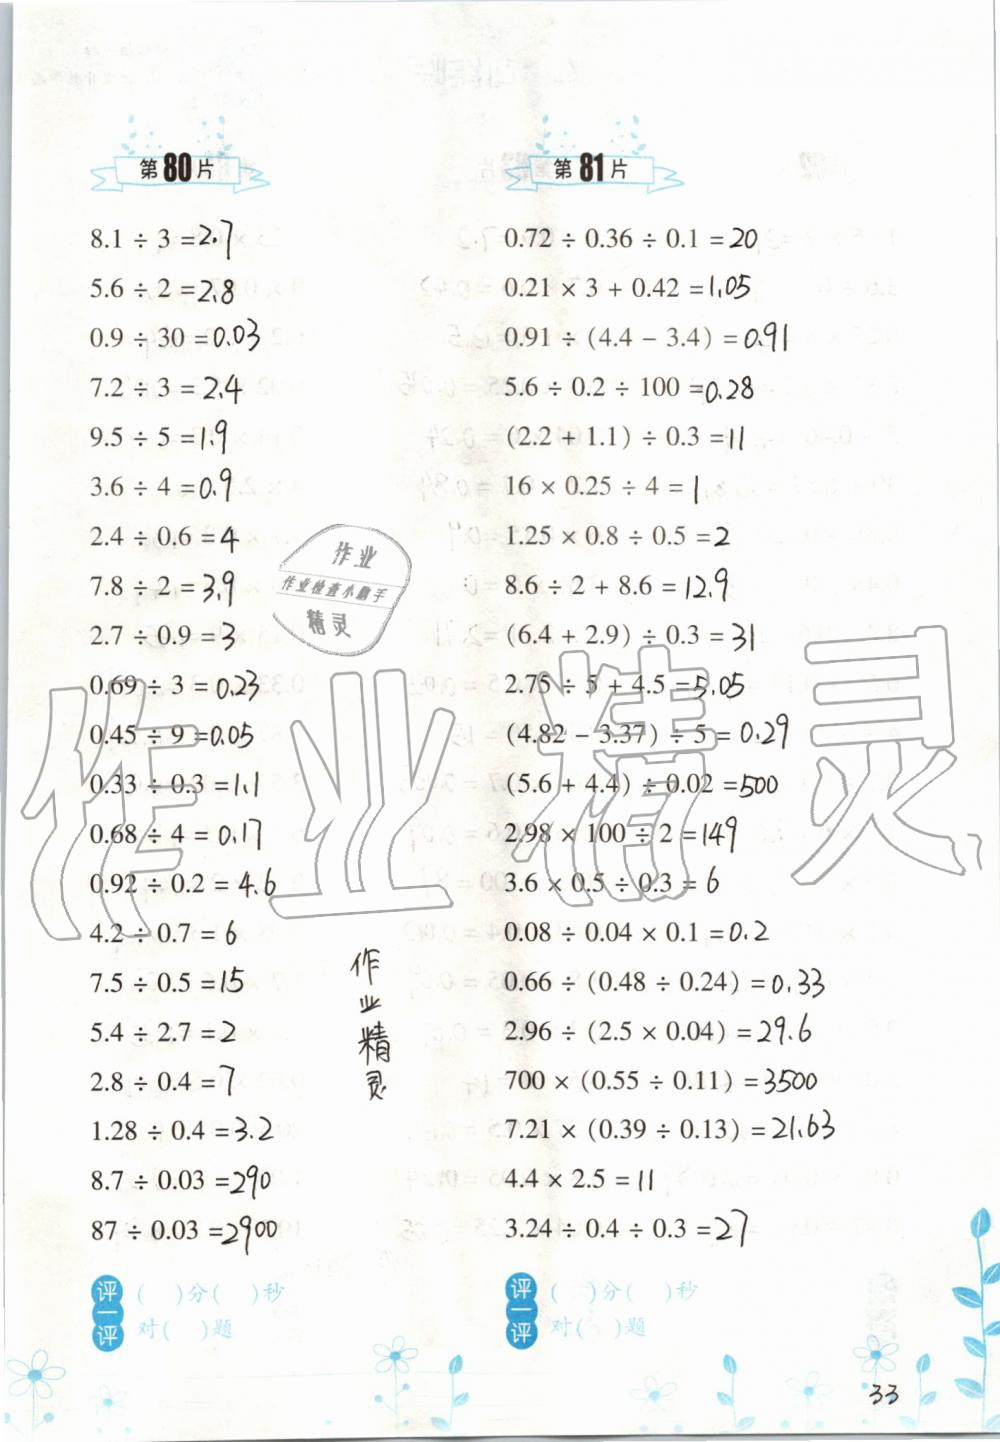 第80片
8.1 ÷ 3 = 2.7
5.6 ÷ 2 = 2.8
0.9 ÷ 30 = 0.03
7.2 ÷ 3 = 2.4
9.5 ÷ 5 = 1.9
3.6 ÷ 4 = 0.9
2.4 ÷ 0.6 = 4
7.8 ÷ 2 = 3.9
2.7 ÷ 0.9 = 3
0.69 ÷ 3 = 0.23
0.45 ÷ 9 = 0.05
0.33 ÷ 0.3 = 1.1
0.68 ÷ 4 = 0.17
0.92 ÷ 0.2 = 4.6
4.2 ÷ 0.7 = 6
7.5 ÷ 0.5 = 15
5.4 ÷ 2.7 = 2
2.8 ÷ 0.4 = 7
1.28 ÷ 0.4 = 3.2
8.7 ÷ 0.03 = 290
87 ÷ 0.03 = 2900
评一评
( )分( )秒
对( )题
第81片
0.72 ÷ 0.36 ÷ 0.1 = 20
0.21 × 3 + 0.42 = 1.05
0.91 ÷ (4.4 - 3.4) = 0.91
5.6 ÷ 0.2 ÷ 100 = 0.28
(2.2 + 1.1) ÷ 0.3 = 11
16 × 0.25 ÷ 4 = 1
1.25 × 0.8 ÷ 0.5 = 2
8.6 ÷ 2 + 8.6 = 12.9
(6.4 + 2.9) ÷ 0.3 = 31
2.75 ÷ 5 + 4.5 = 5.05
(4.82 - 3.37) ÷ 5 = 0.29
(5.6 + 4.4) ÷ 0.02 = 500
2.98 × 100 ÷ 2 = 149
3.6 × 0.5 ÷ 0.3 = 6
0.08 ÷ 0.04 × 0.1 = 0.2
0.66 ÷ (0.48 ÷ 0.24) = 0.33
2.96 ÷ (2.5 × 0.04) = 29.6
700 × (0.55 ÷ 0.11) = 3500
7.21 × (0.39 ÷ 0.13) = 21.63
4.4 × 2.5 = 11
3.24 ÷ 0.4 ÷ 0.3 = 27
评一评
( )分( )秒
对( )题
作业
作业检查小助手
精灵
作业精灵
作业精灵
33